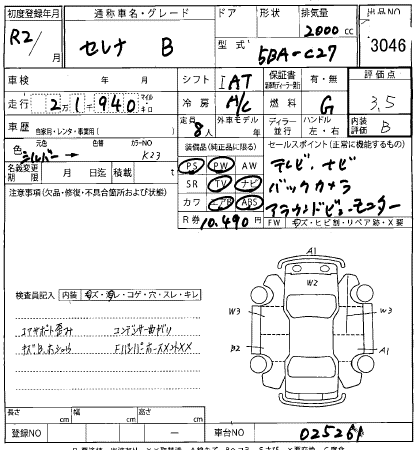 初度登録年月 通称車名・グレード ドア 形状 排気量 出品NO
R2/ 月 セレナ B 2000 cc 3046
型式 5BA-C27
車検 年 月 シフト IAT 保証書 有・無 評価点
走行 2 1,940 マイル・キロ 冷房 A/C 燃料 G 3,5
車歴 自家用・レンタ・事業用( ) 定員 8人 外車モデル 年 ディーラー 並行 ハンドル 左・右 内装評価 B
色 元色 シルバー → 色替 カラーNO K23
名義変更期限 月 日迄 積載 t
装備品(純正品に限る) セールスポイント(正常に機能するもの)
PS PW AW テレビ、ナビ
SR TV ナビ バックカメラ
カワ エアB ABS アラウンドビューモニター
R券 10,490円 FW キズ・ヒビ割・リペア跡・X要
注意事項(欠品・修復・不具合箇所および状態)
検査員記入 内装 キズ・汚レ・コゲ・穴・スレ・キレ
コアサポート歪み コンデンサー曲がり
A1
W2
W3 W3
B2 A1
長さ cm 幅 cm 高さ cm
登録NO ー 車台NO 025261